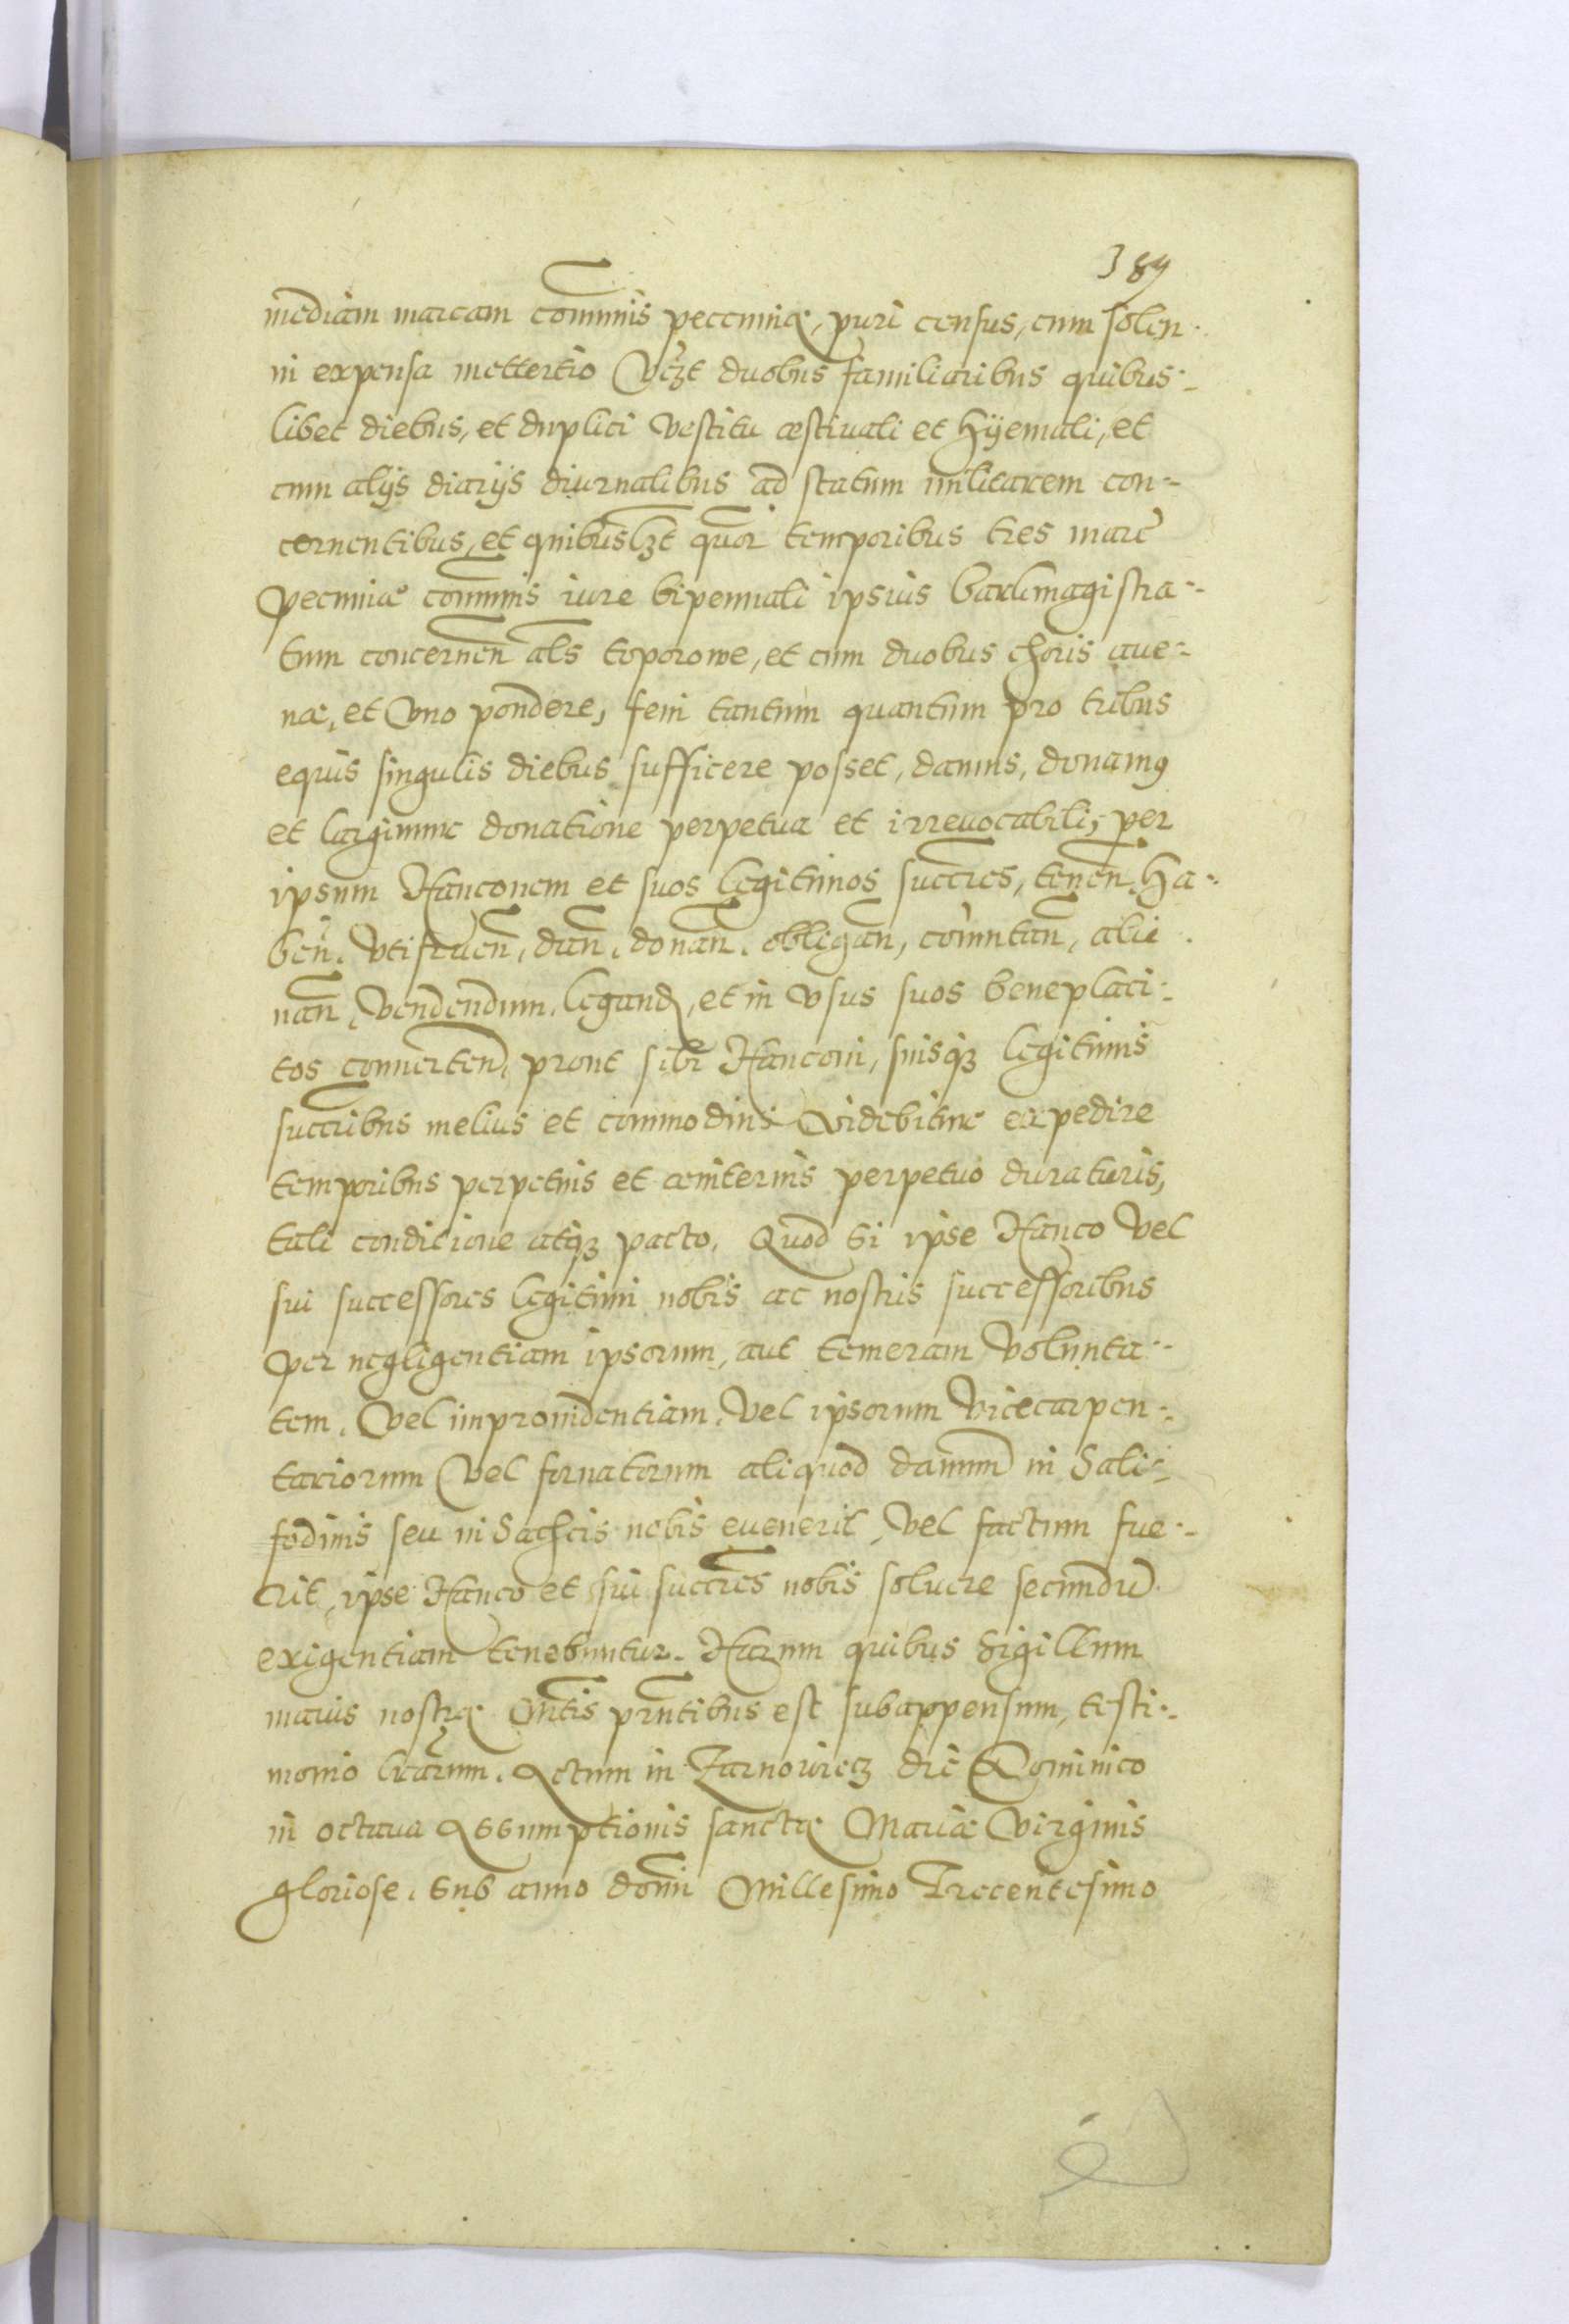 389
mediam marcam com̄unis peccuniæ, puri census, cum solen-
ni expensa mettertio Vczt duobus familiaribus quibus-
libet diebus, et duplici vestitu æstiuali et hÿemali, et
cum alijs diarijs diurnalibus ad statum militarem con-
cernentibus, et quibuslzt quor temporibus tres marc
pecuniæ com̄unis iure bipennali ipsius barkmagistra-
tum concernen̄ als toporowe, et cum duobus choris aue-
næ, et Vno pondere, feni tantum quantum pro tribus
equis singulis diebus sufficere posset, damus, donamꝰ
et largimur donatione perpetua et irreuocabili, per
ipsum Hanconem et suos legitimos succres, tenen̄, ha-
ben̄. Vtifruen̄, dan̄, donan̄. obligan̄, com̄utan̄, alie
nan̄, vendendum, legand, et in vsus suos beneplaci-
tos conuertend, prout sibi Hanconi, suisqꝫ legitimis
succribus melius et commodius Videbitur expedire
temporibus perpetuis et æuiternis perpetuo duraturis,
tali condicione atqꝫ pacto. Quod si ipse Hanco Vel
sui successores legitimi nobis ac nostris successoribus
per negligentiam ipsorum, aut temeram volunta-
tem, Vel improuidentiam, Vel ipsorum Vicecarpen-
tariorum Vel fornatorum aliquod damnum in Sali-
fodinis seu in Sachtis nobis euenerit, Vel factum fue-
rit, ipse Hanco et sui succres nobis soluere secundū
exigentiam tenebuntur. Harum quibus Sigillum
maius nostræ Mtis prntibus est subappensum, testi-
monio lrarum. Actum in Zarnowiecz die Dominico
in octaua Assumptionis sanctæ Mariæ Virginis
gloriose. Sub anno domi Millesimo Trecentesimo